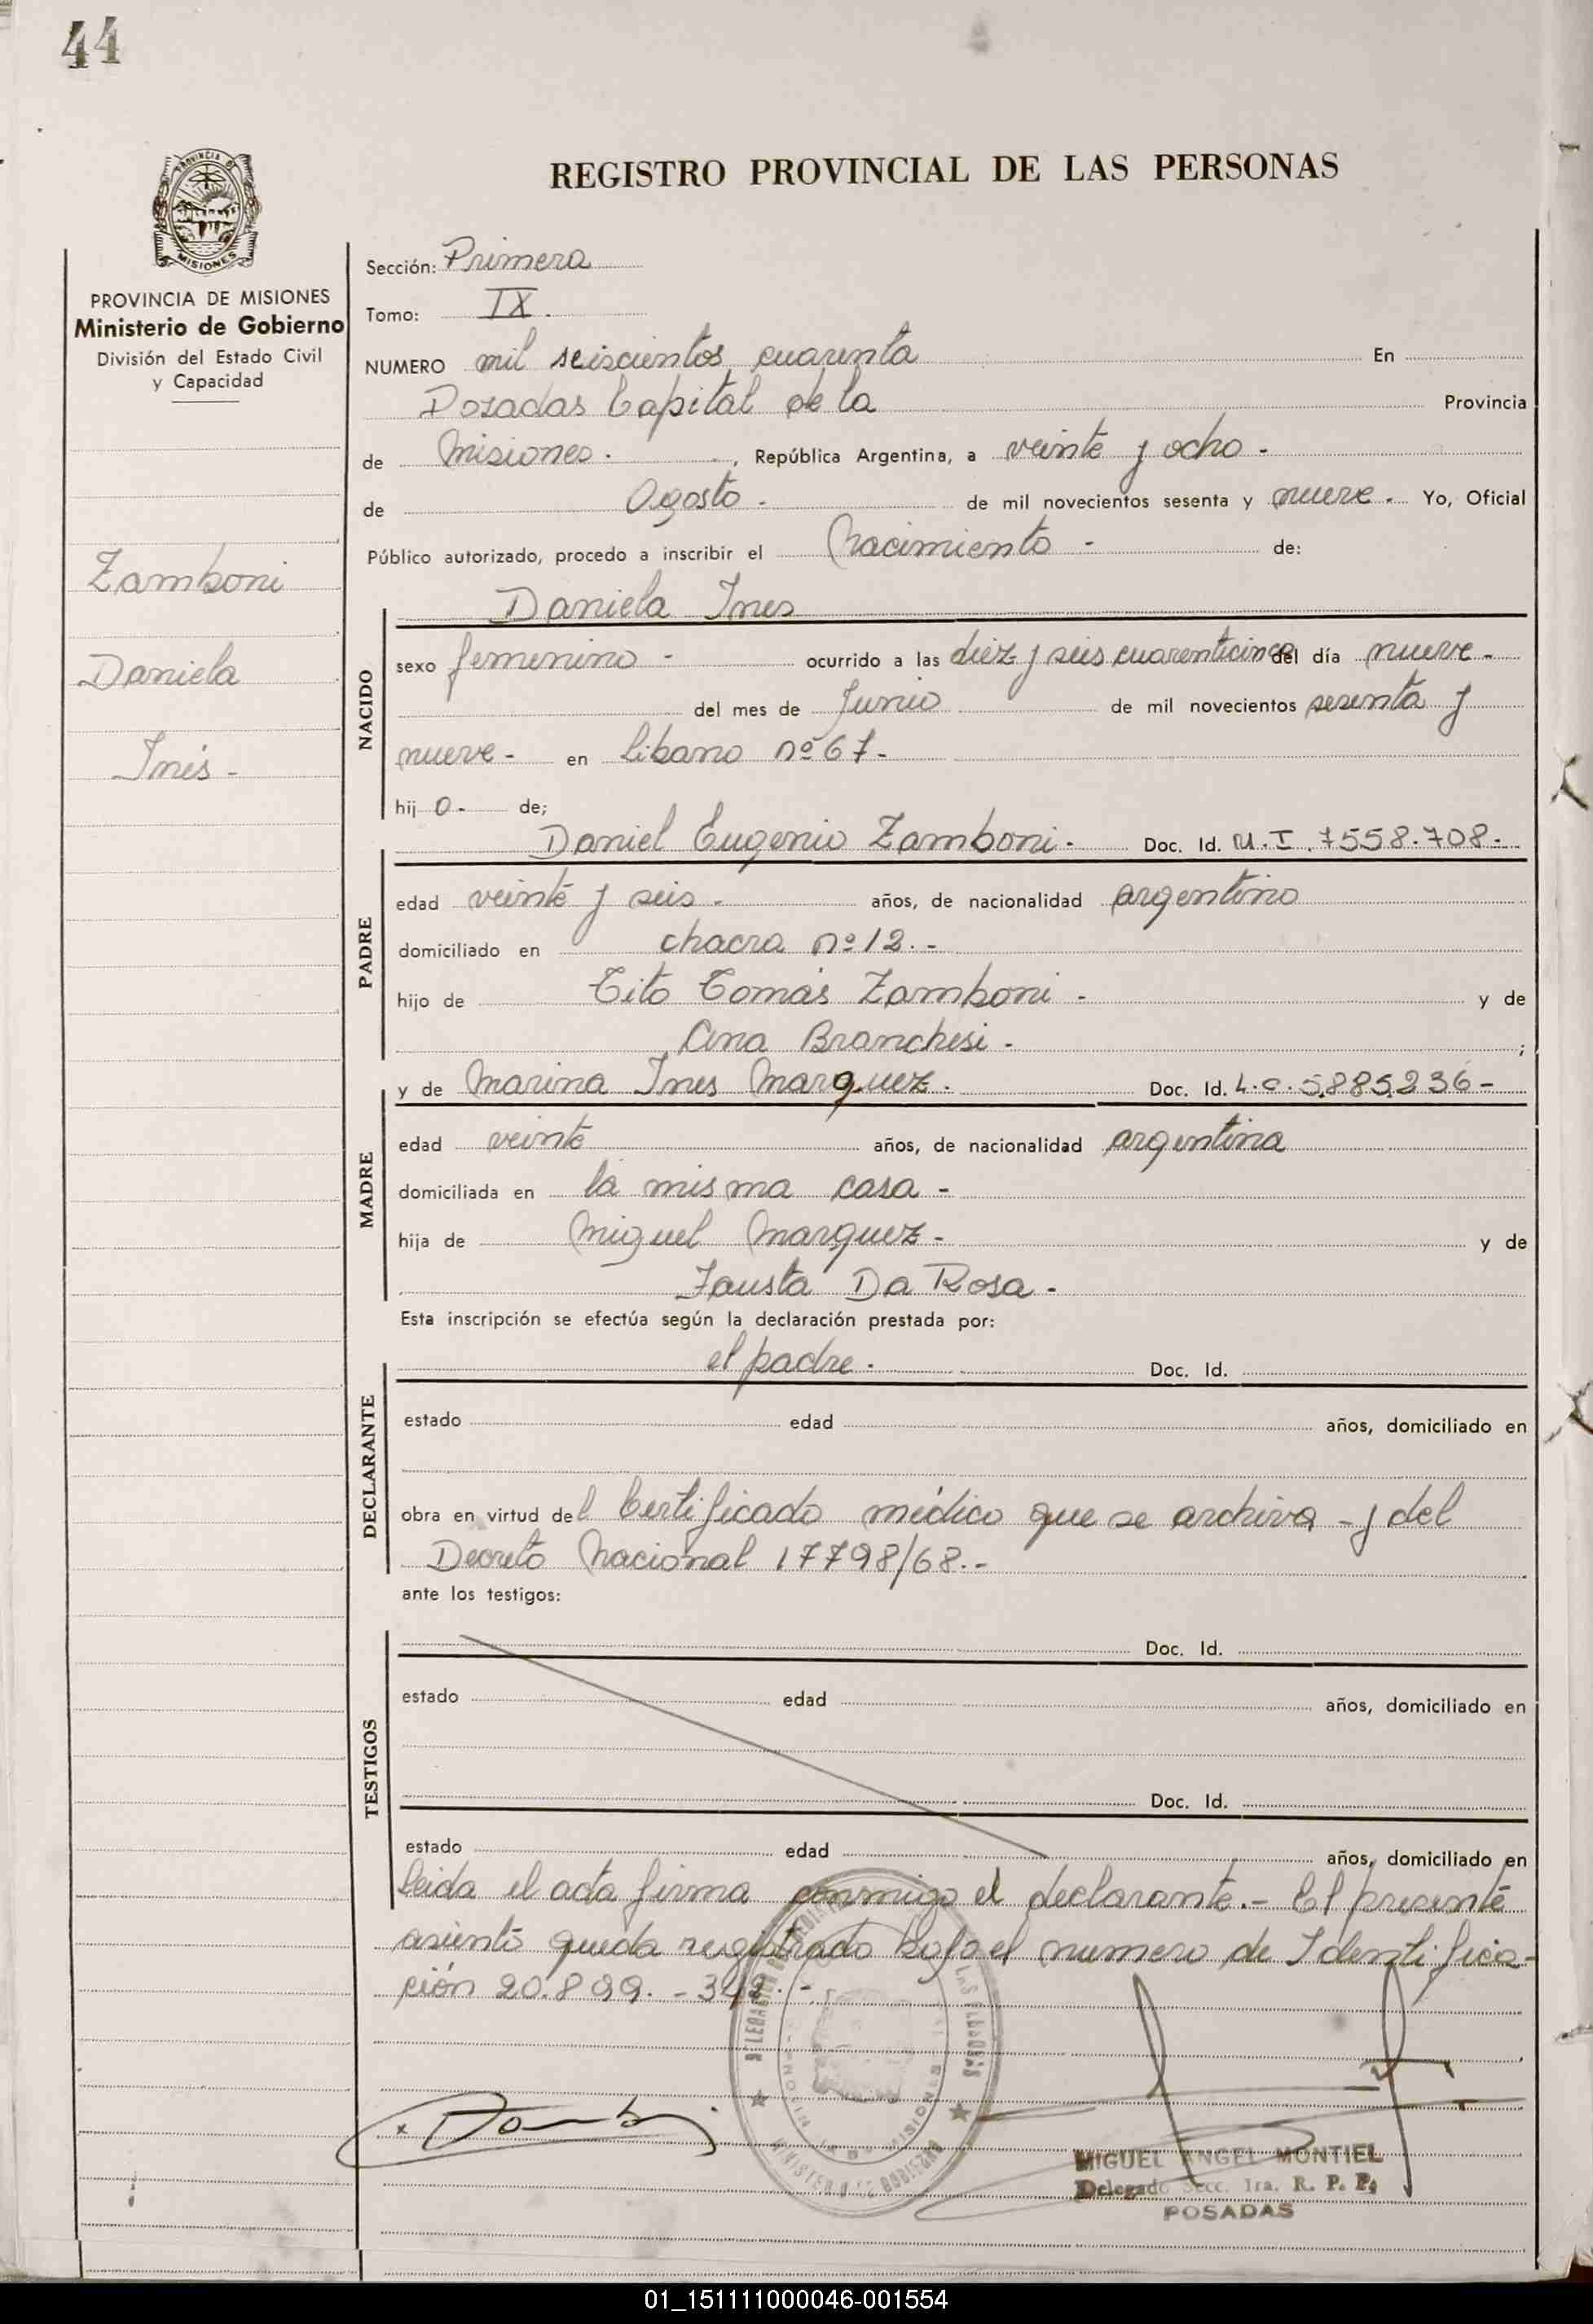 44
PROVINCIA DE
MISIONES
PROVINCIA DE MISIONES
Ministerio de Gobierno
División del Estado Civil
y Capacidad
Zamboni
Daniela
Inés -
REGISTRO PROVINCIAL DE LAS PERSONAS
Sección: Primera
Tomo: IX.
NUMERO mil seiscientos cuarenta En
Posadas Capital de la Provincia
de Misiones. , República Argentina, a veinte y ocho -
de Agosto - de mil novecientos sesenta y nueve. Yo, Oficial
Público autorizado, procedo a inscribir el Nacimiento - de:
Daniela Ines
NACIDO
sexo femenino - ocurrido a las diez y seis cuarenticinco del día nueve -
del mes de Junio de mil novecientos sesenta y
nueve - en Libano nº 67 -
hij o - de;
Daniel Eugenio Zamboni - Doc. Id. M. I. 7558.708 -
PADRE
edad veinte y seis - años, de nacionalidad argentino
domiciliado en chacra nº 12. -
hijo de Tito Tomás Zamboni - y de
Ana Branchesi - ;
y de Marina Ines Marquez. Doc. Id. L. C. 5.885.236 -
MADRE
edad veinte años, de nacionalidad argentina
domiciliada en la misma casa -
hija de Miguel Marquez - y de
Fausta Da Rosa -
Esta inscripción se efectúa según la declaración prestada por:
el padre. Doc. Id.
DECLARANTE
estado edad años, domiciliado en
obra en virtud del Certificado médico que se archiva - y del
Decreto Nacional 17798/68. -
ante los testigos:
TESTIGOS
Doc. Id.
estado edad años, domiciliado en
Doc. Id.
estado edad años, domiciliado en
Leida el acta firma conmigo el declarante. - El presente
asiento queda registrado bajo el numero de Identifica-
ción 20.899. -
MIGUEL ANGEL MONTIEL
Delegado Secc. 1ra. R. P. P.
POSADAS
01_151111000046-001554